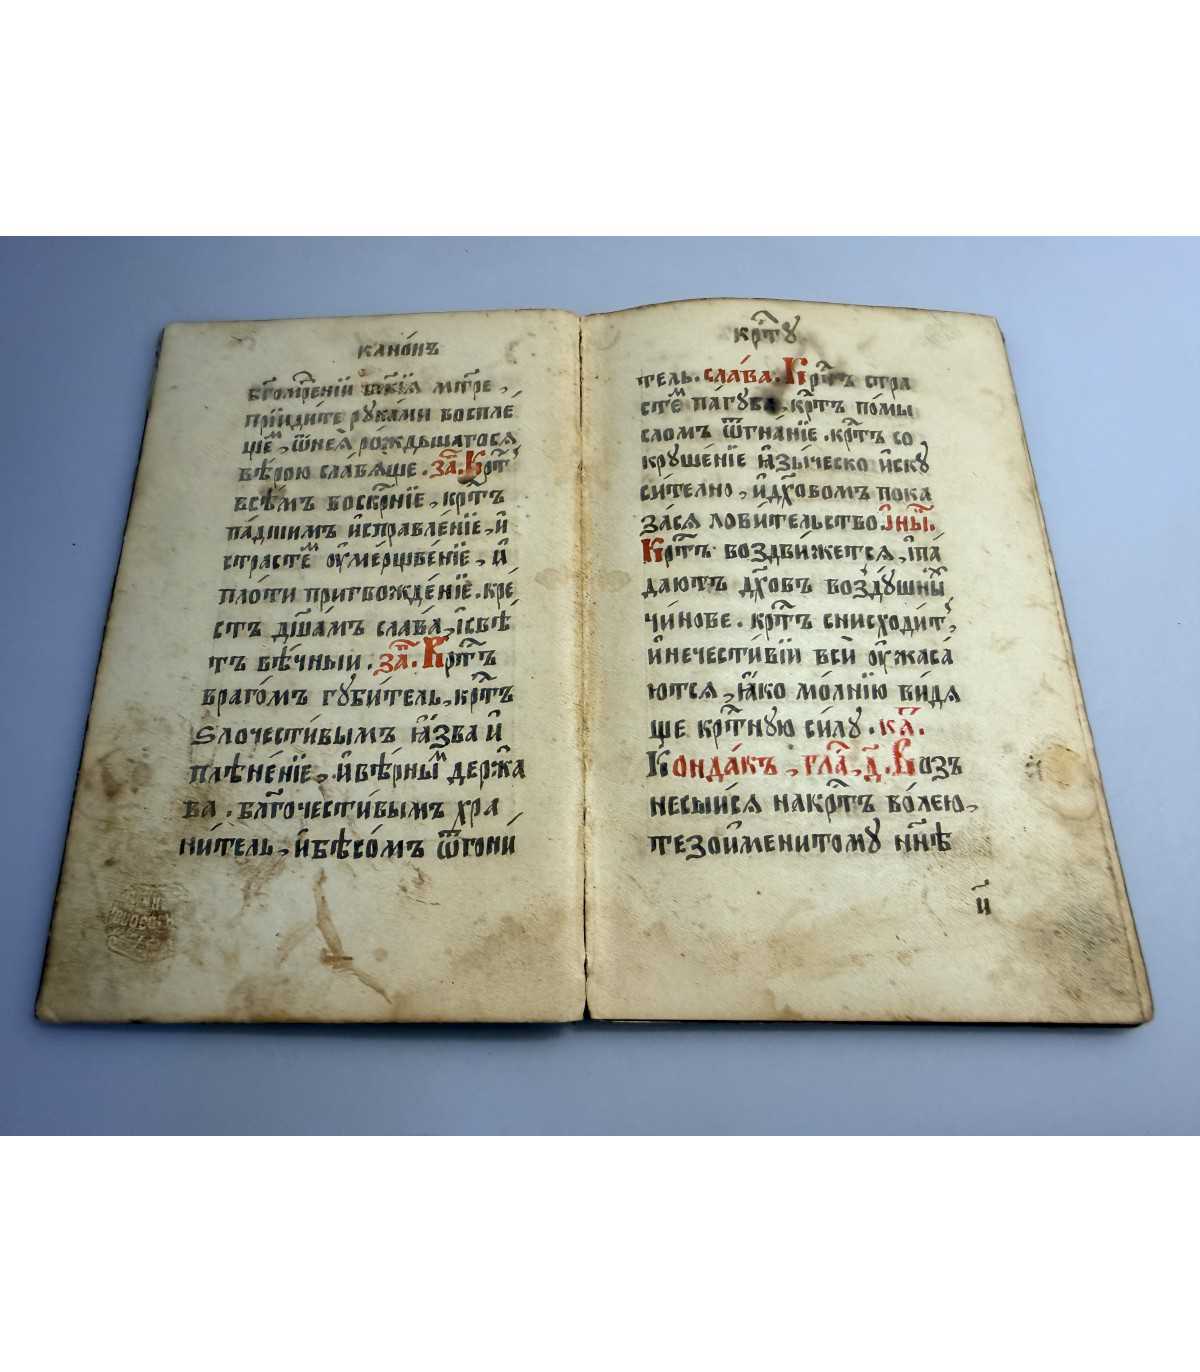 канѡ́нъ
бг҃омт҃ре́нїи бж҃їѧ мт҃ре,
прїидите рꙋка́ми воспле́
щꙋ́щїи, ѿнеѧ̀ ро́ждьшагосѧ
вѣ́рою сла́вѧще. за҃. Крт҃ъ
всѣ́мъ воскрн҃їе, крт҃ъ
па́дшимъ и҆справле́нїе, и҆
страсте́м ᲂу҆мерщве́нїе, и҆
пло́ти пригвожде́нїе. кре́
стъ дш҃а́мъ сла́ва, і҆свѣ́
тъ вѣ́чный. за҃. Крт҃ъ
враго́мъ гꙋби́тель, крт҃ъ
ѕлочести́вымъ ꙗ҆́зва и҆
плѣне́нїе, и҆вѣ́рным держа́
ва. бл҃гочести́вымъ хра
ни́тель, и҆бѣсо́мъ ѿгони́
крт҃ꙋ
тель. сла́ва. Крт҃ъ стра
сте́м па́гꙋба, крт҃ъ по́мы
сломъ ѿгна́нїе. крт҃ъ со
крꙋше́нїе ꙗ҆зы́ческо и҆скꙋ
си́телно, и҆дх҃овомъ пока
за́сѧ лови́тельство. и҆ны҃.
Крт҃ъ воздви́жетсѧ, і҆па́
даютъ дх҃овъ возд́ꙋшных
чи́нове. крт҃ъ снисхо́дит,
и҆нечести́вїи всѝ ᲂу҆жаса́
ютсѧ, ꙗ҆́ко мо́лнїю ви́дѧ
ще крт҃нꙋю си́лꙋ. ка҃.
Конда́къ, гла҃, д҃. Воз
несы́йсѧ накрт҃ъ во́лею,
тезои҆мени́томꙋ нн҃ѣ
и҃